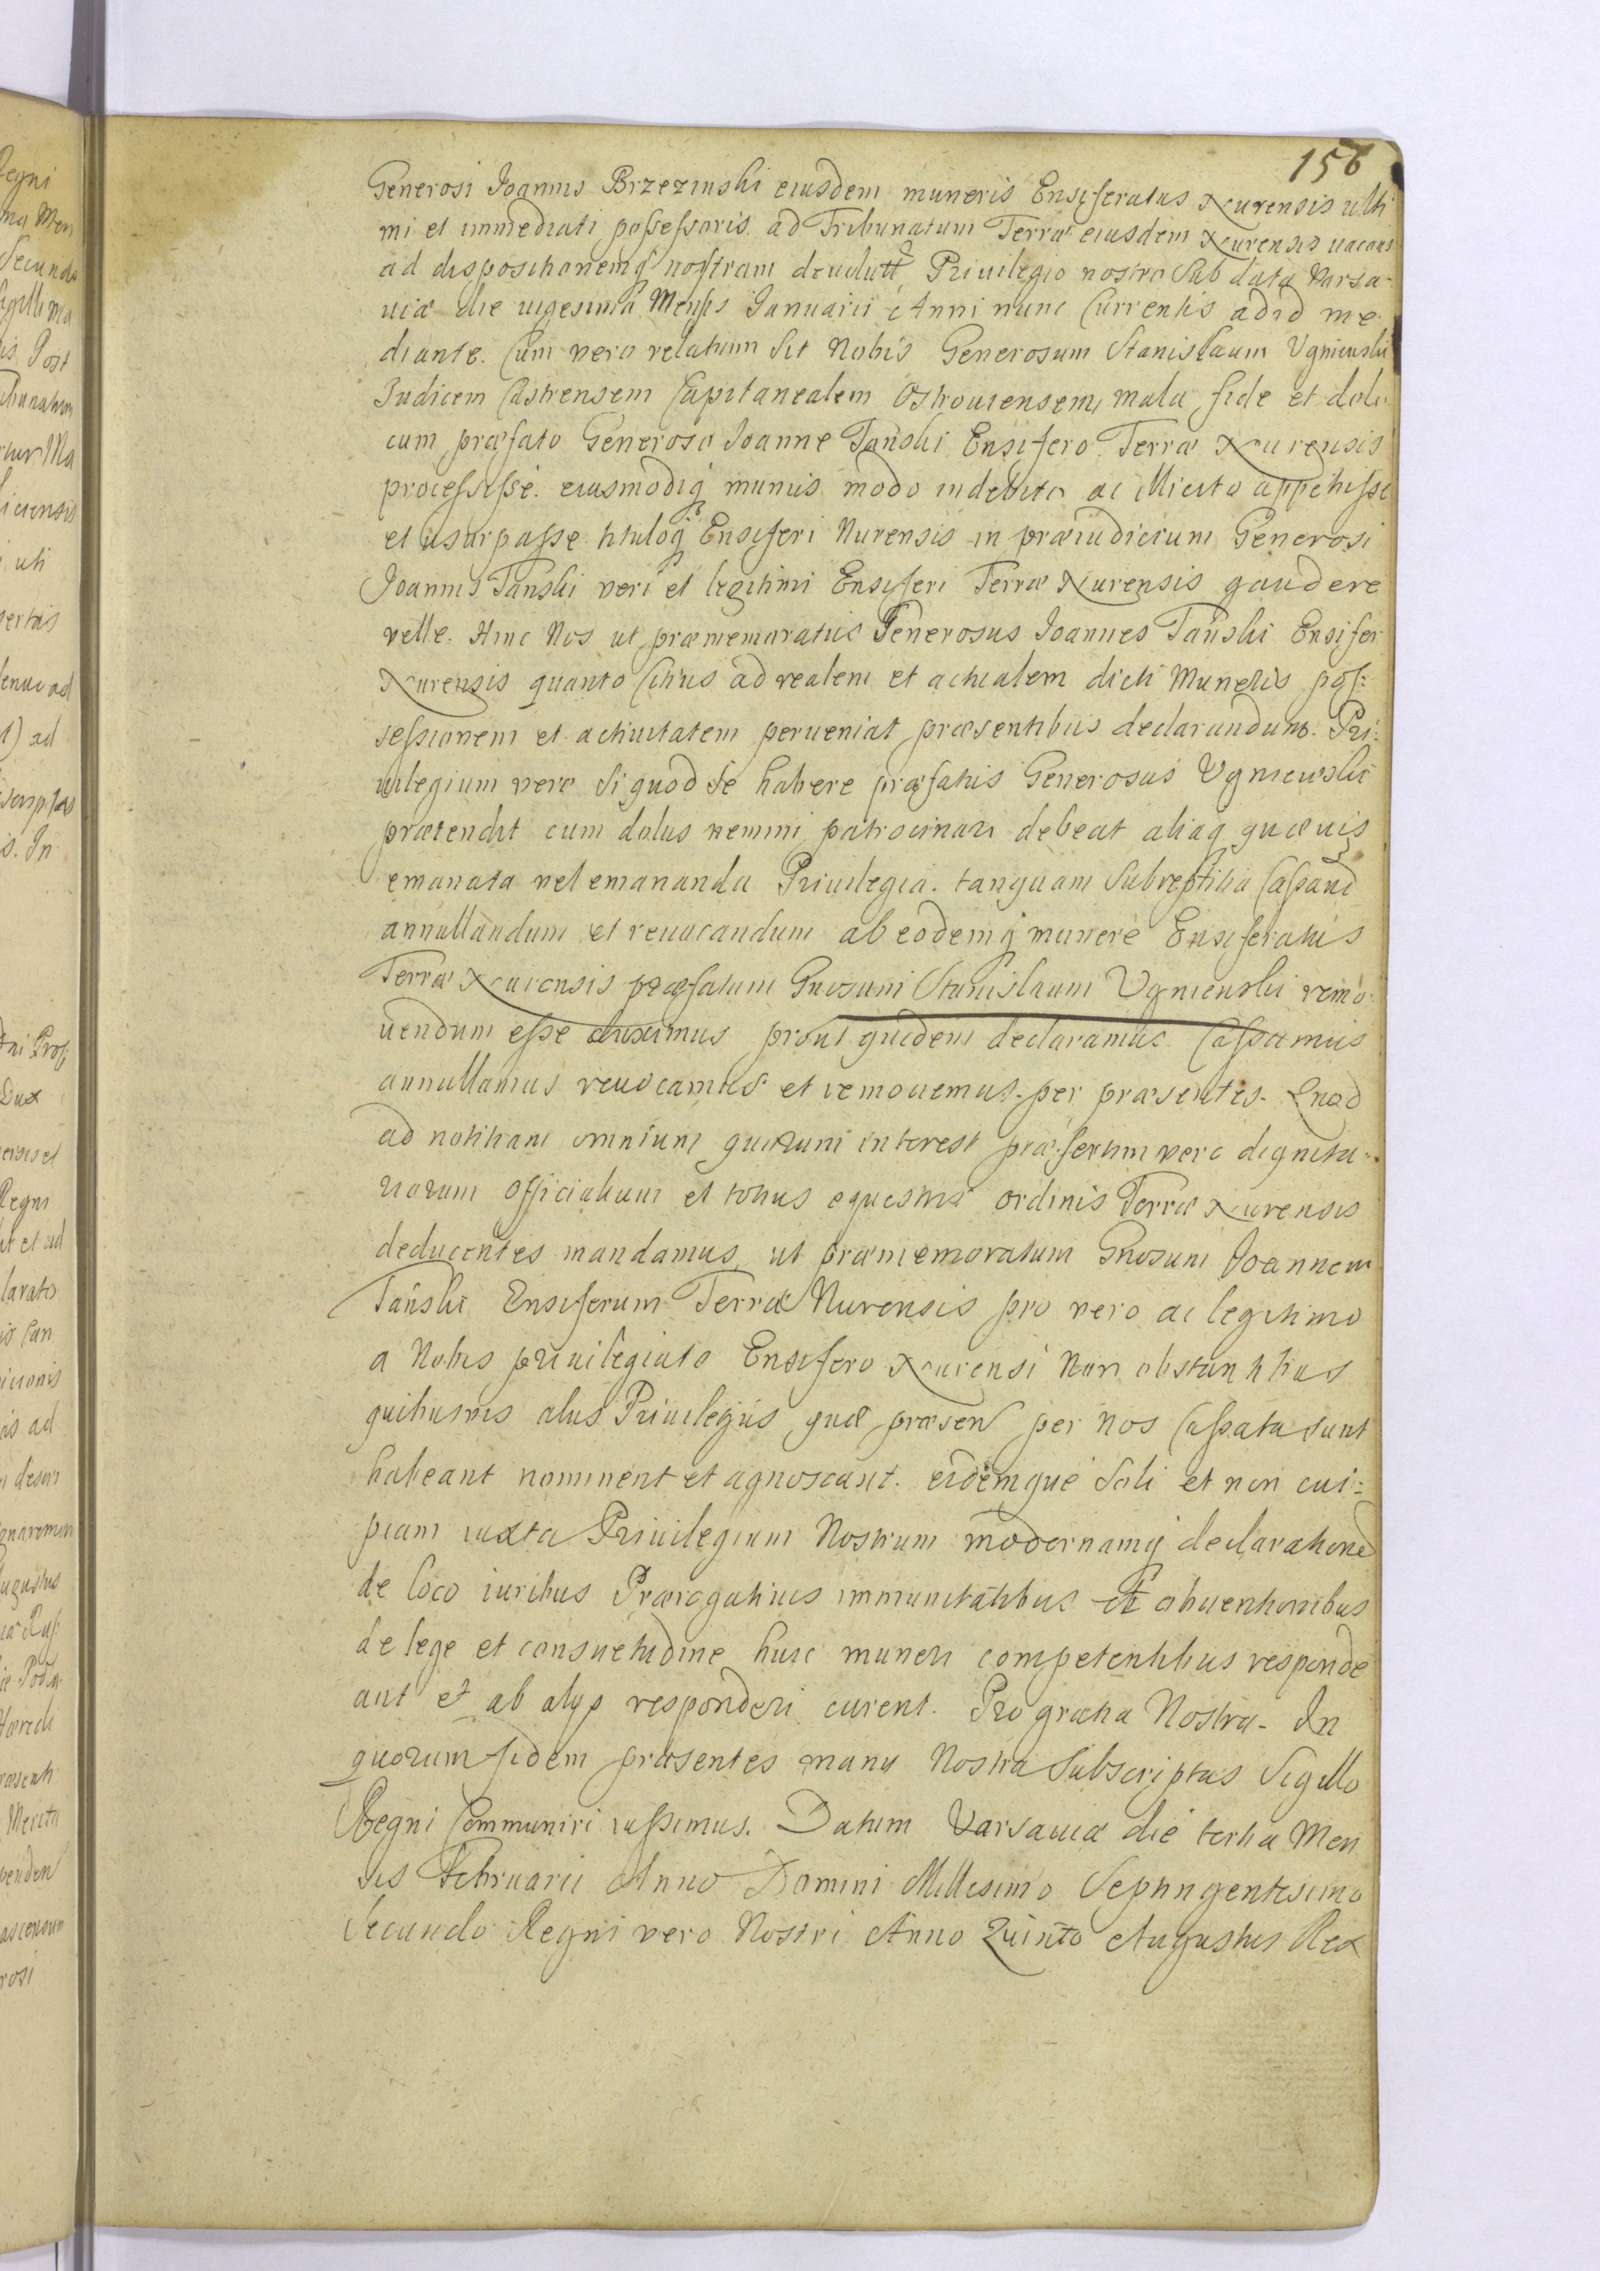 156
Generosi Joannis Brzezinski eiusdem muneris Ensiferatus Nurensis ulti
mi et immediati possessoris ad Tribunatum Terræ eiusdem Nurensis vacans
ad dispositionemq nostram devolutt Privilegio nostro Sub data Varsa-
viæ die vigesima Mensis Januarii Anni nunc Currentis ad id me-
diante. Cum vero relatum Sit Nobis Generosum Stanislaum Ugniewski
Judicem Castrensem Capitanealem Ostroviensem, mala fide et dolo
cum præfato Generoso Joanne Tański Ensifero Terræ Nurensis
processisse. eiusmodiq munus modo indebito ac illicito appetiisse
et usurpasse titulóq Ensiferi Nurensis in præiudicium Generosi
Joannis Tański veri et legitimi Ensiferi Terræ Nurensis gaudere
velle. Hinc Nos ut præmemoratus Generosus Joannes Tański Ensifer
Nurensis quanto Citius ad realem et actualem dicti Muneris pos:
sessionem et activitatem perveniat præsentibus declarandum. Pri:
vilegium vero Si quod Se habere præfatus Generosus Ugniewski
prætendit cum dolus nemini patrocinari debeat aliaq quævis
emanata vel emananda Privilegia tanquam Subreptitia Cassand
annullandum et revocandum ab eodemq munere Ensiferatus
Terræ Nurensis præfatum Gnosum Stanislaum Ugniewski remo-
vendum esse duximus prout quidem declaramus Cassamus
annullamus revocamus et removemus per præsentes. Quod
ad notitiam omnium quorum interest præsertim vero dignita-
riorum officialium et totius equestris ordinis Terræ Nurensis
deducentes mandamus, ut præmemoratum Gnosum Joannem
Tański Ensiferum Terræ Nurensis pro vero ac legitimo
a Nobis privilegiato Ensifero Nurensi Non obstantibus
quibusvis aliis Privilegiis quæ præsen per Nos Cassata sunt
habeant nominent et agnoscant. eidemque Soli et non cui:
piam iuxta Privilegium Nostrum modernamq declarationē
de loco iuribus Prærogativis immunitatibus et obventionibus
de lege et consuetudine huic muneri competentibus responde
ant et ab alys responderi curent. Pro gratia Nostra. In
quorum fidem præsentes manu Nostra Subscriptas Sigillo
Regni Communiri iussimus. Datum Varsaviæ die tertia Men
sis Februarii Anno Domini Millesimo Septingentesimo
Secundo Regni vero Nostri Anno Quinto Augustus Rex